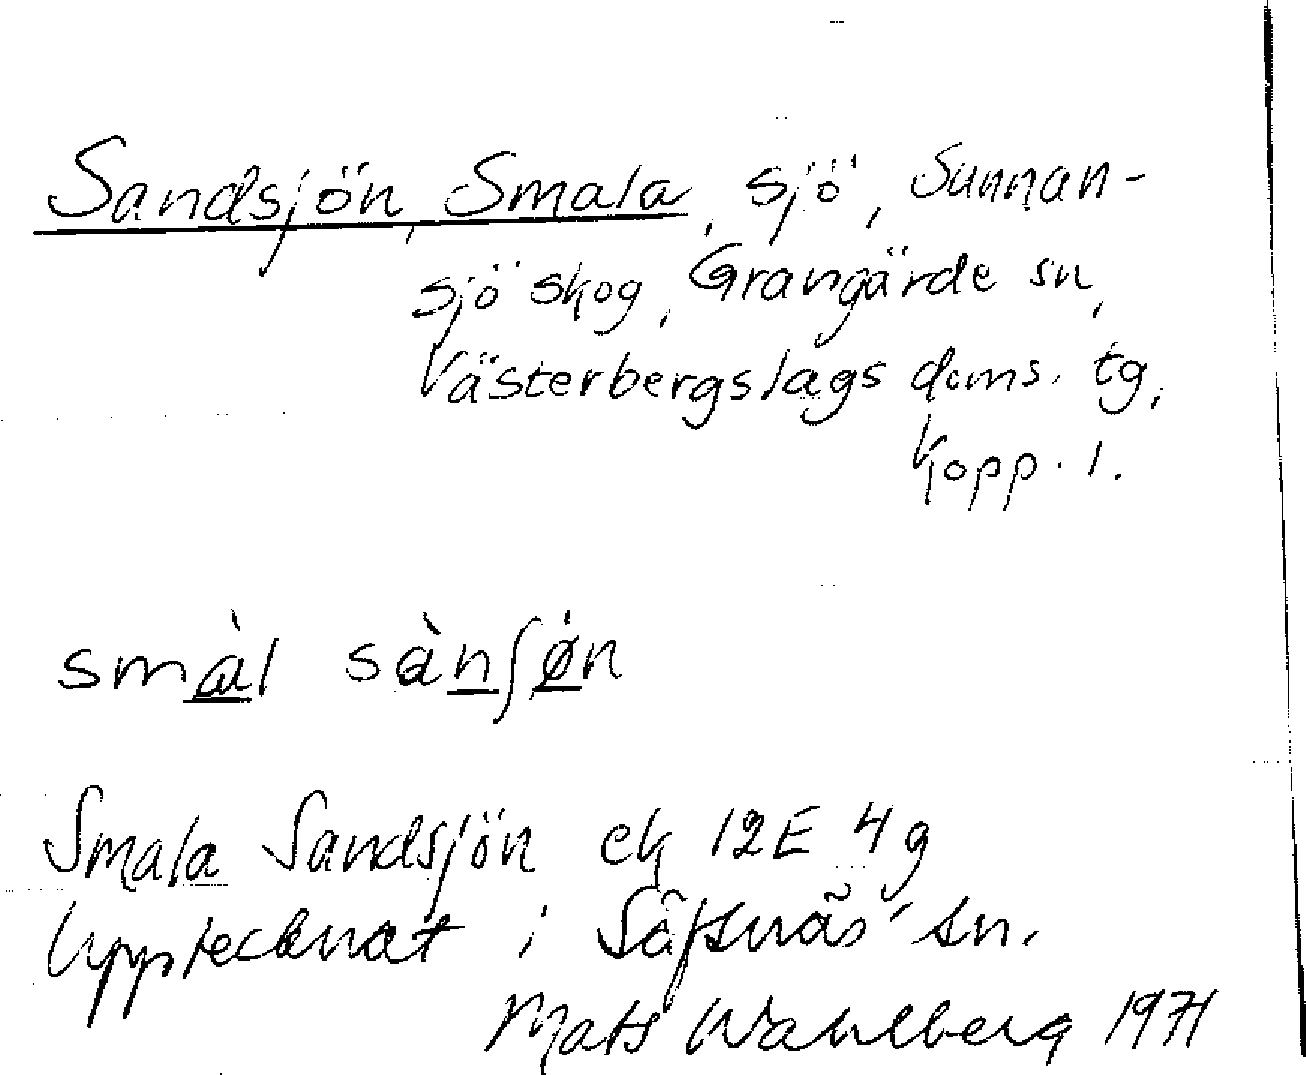 Sandsjön, Smala, sjö, Sunnan-
sjö skog, Grangärde sn,
Västerbergslags doms. tg,
Kopp. l.
smàl sànʃøn
Smala Sandsjön ek 12E 4g
Upptecknat i Säfsnäs sn.
Mats Wahlberg 1971